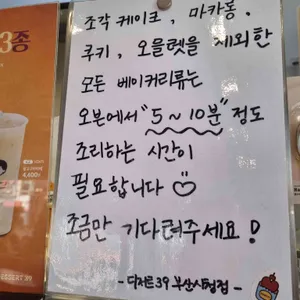 3종
4,400원
조각 케이크, 마카롱,
쿠키, 오믈렛을 제외한
모든 베이커리류는
오븐에서 "5~10분" 정도
조리하는 시간이
필요합니다
조금만 기다려주세요!
- 디저트39 부산시청점 -